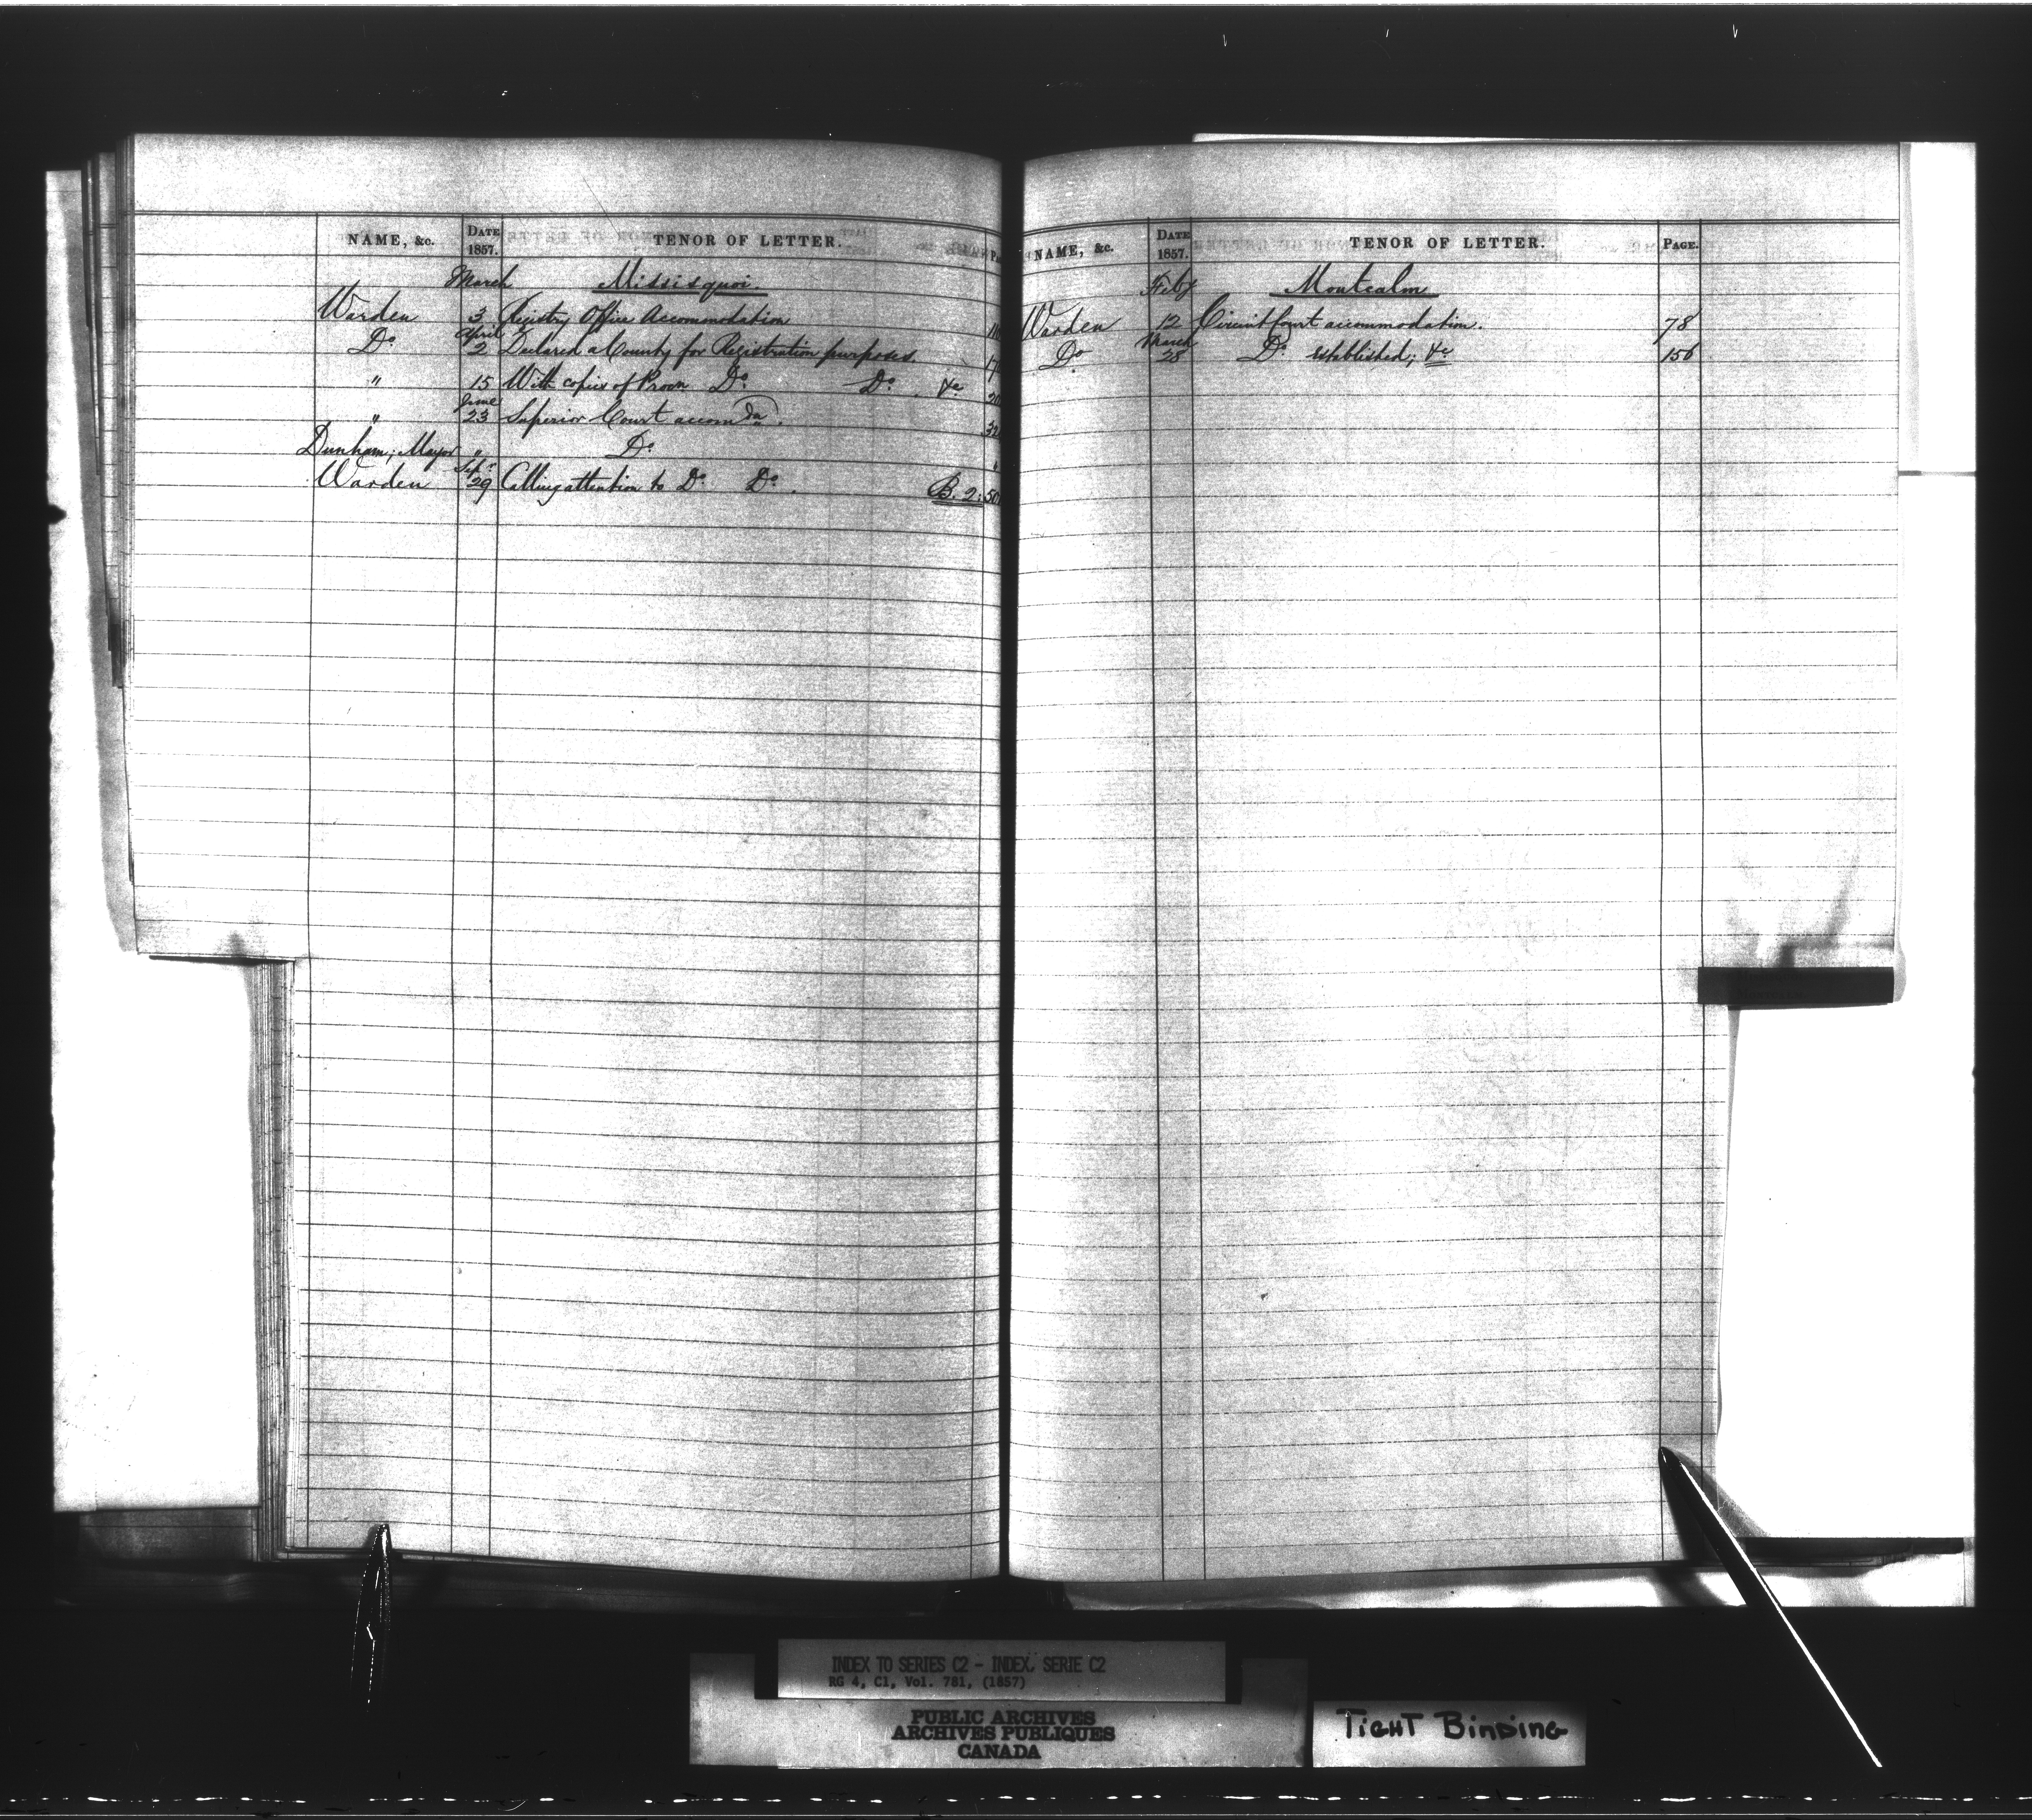 NAME, &c. DATE 1857. TENOR OF LETTER.
March Missisquoi.
Warden 3 Registry Office Accommodation
April
Do 2 Declared a County for Registration purposes
" 15 With copies of Procn Do Do. &c
June
" 23 Superior Court accomdn.
Dunham; Mayor " Do
Sepr
Warden 29 Calling attention to Do Do. B. 2.
NAME, &c. DATE 1857. TENOR OF LETTER. PAGE.
Feby Montcalm
Warden 12 Circuit Court accommodation. 78
March
Do 28 Do established; &c 156
INDEX TO SERIES C2 - INDEX, SERIE C2
RG 4, C1, Vol. 781, (1857)
PUBLIC ARCHIVES
ARCHIVES PUBLIQUES
CANADA
TIGHT BINDING